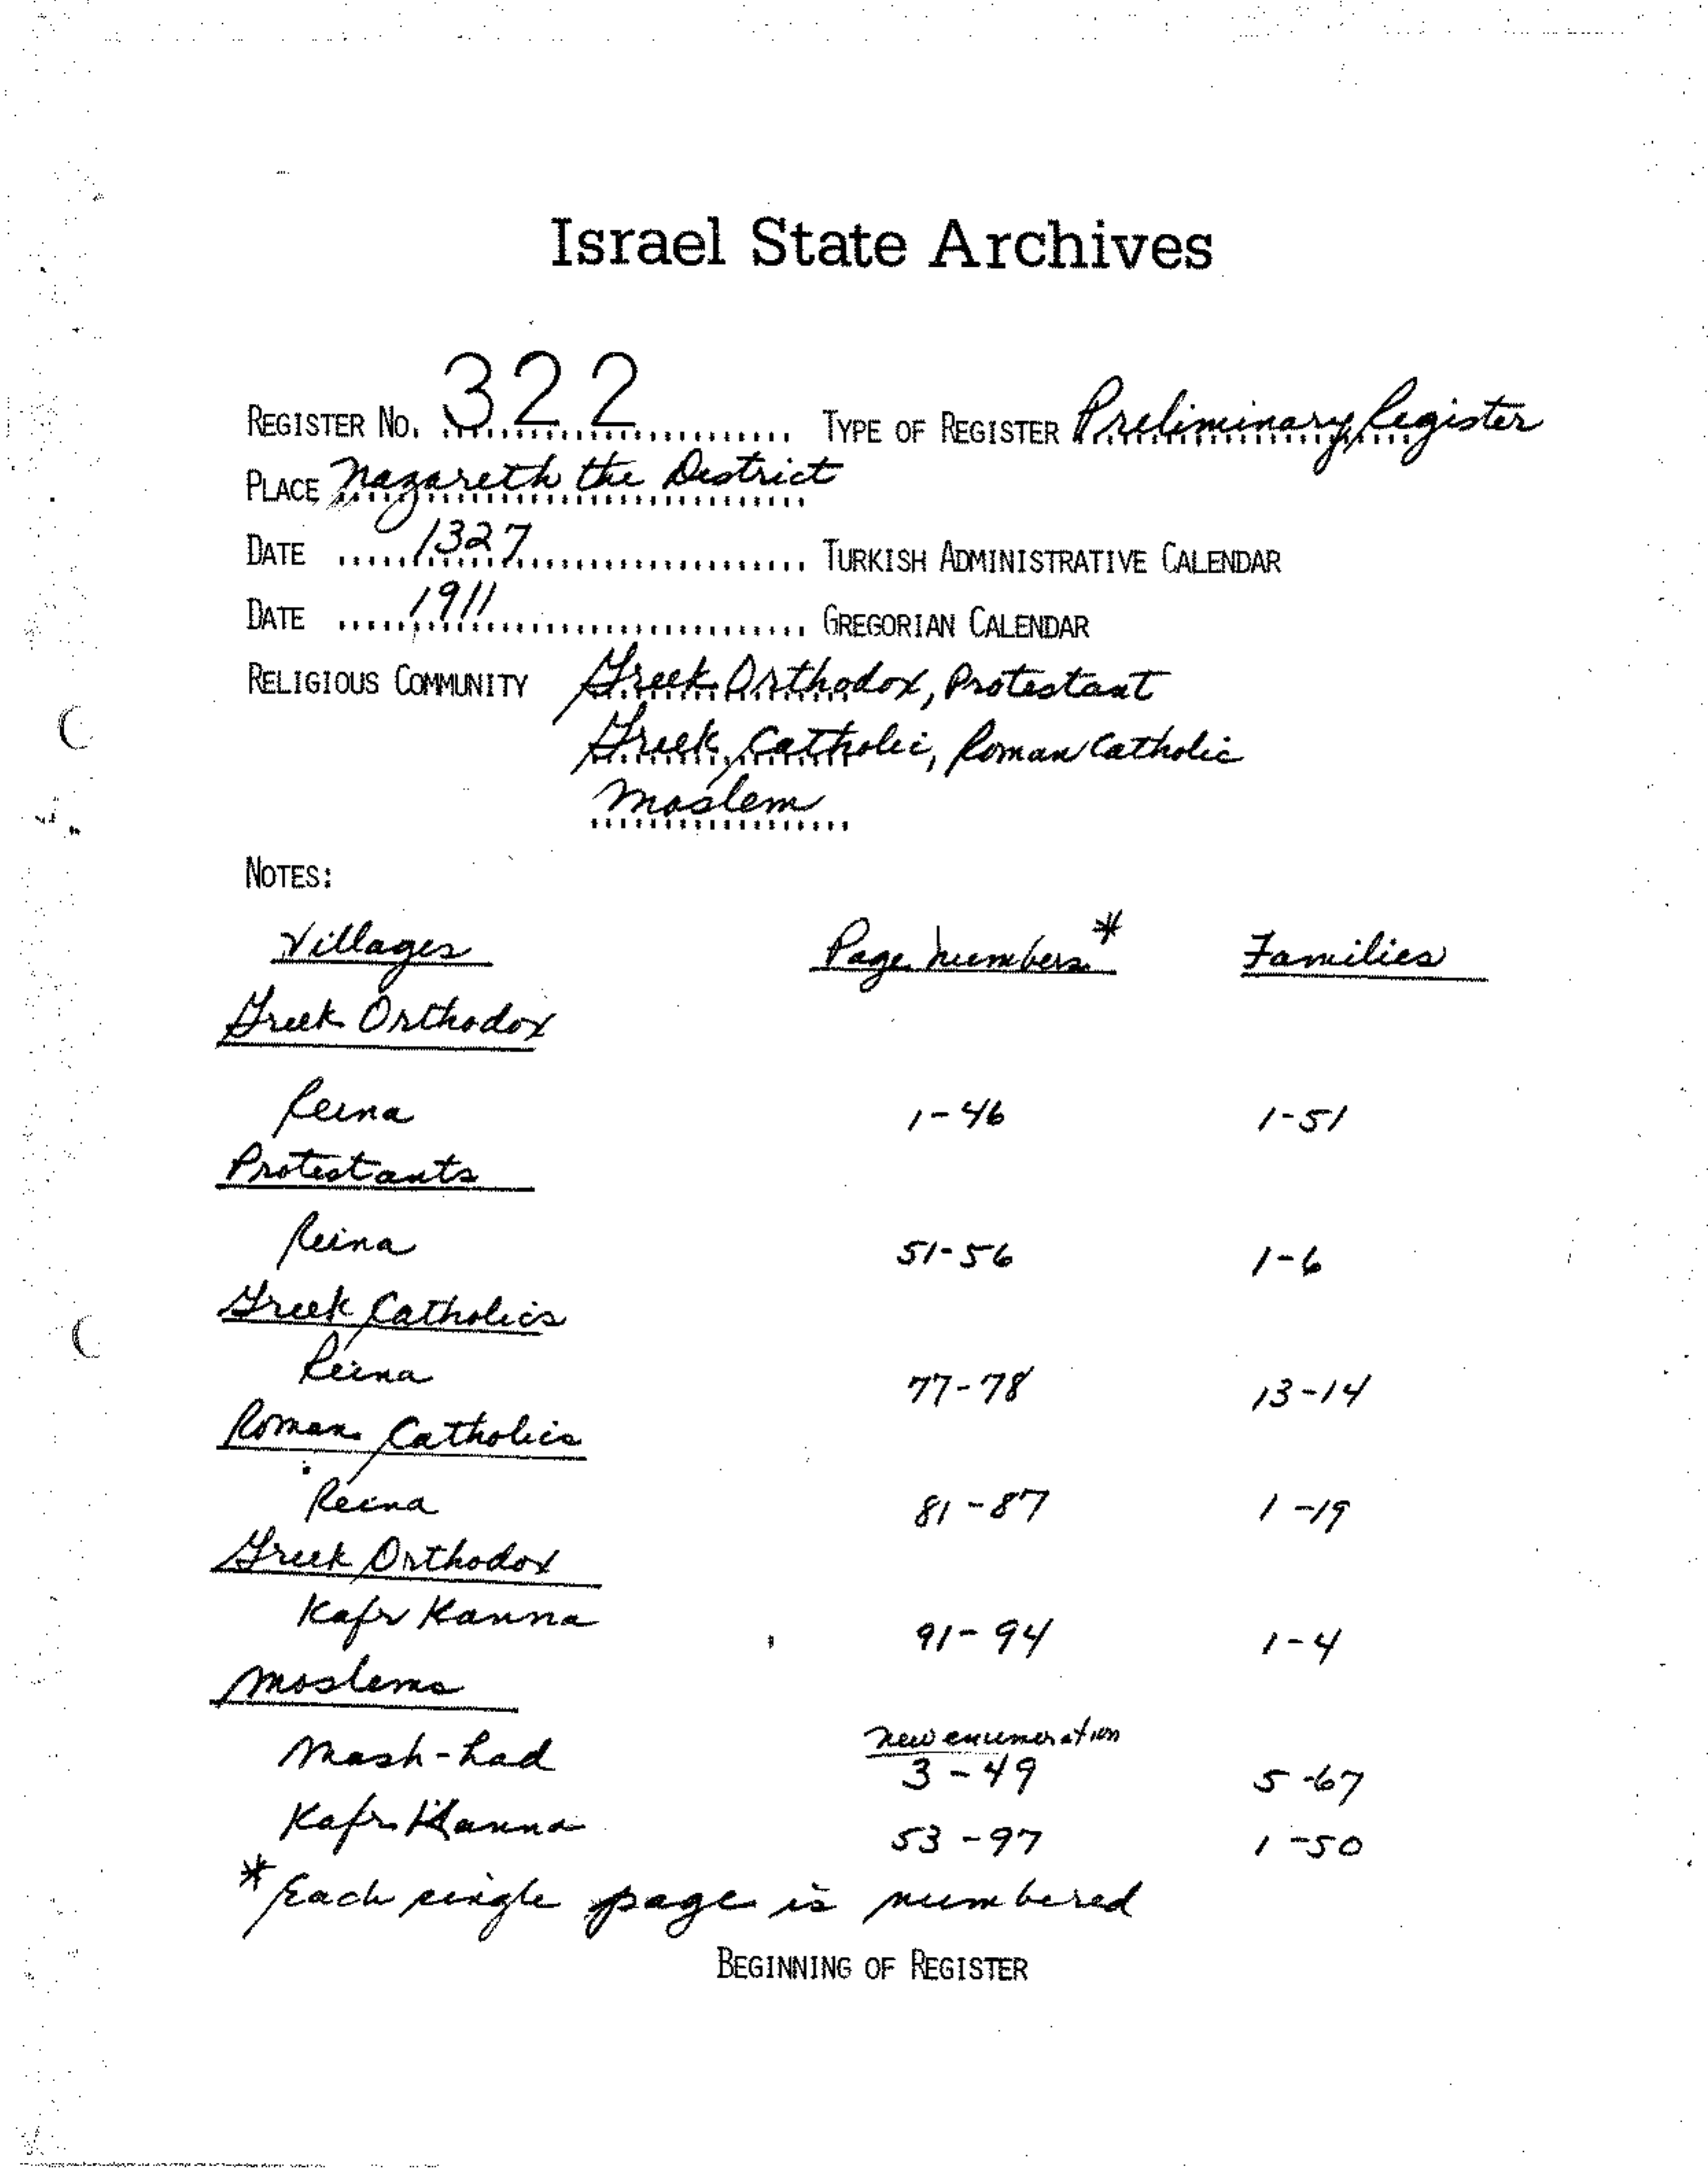 Israel State Archives
REGISTER No. 322 TYPE OF REGISTER Preliminary Register
PLACE Nazareth the District
DATE 1327 TURKISH ADMINISTRATIVE CALENDAR
DATE 1911 GREGORIAN CALENDAR
RELIGIOUS COMMUNITY Greek Orthodox, Protestant
Greek Catholic, Roman Catholic
Moslem
NOTES:
Villages Page numbers* Families
Greek Orthodox
Reina 1-46 1-51
Protestants
Reina 51-56 1-6
Greek Catholics
Reina 77-78 13-14
Roman Catholics
Reina 81-87 1-19
Greek Orthodox
Kafr Kanna 91-94 1-4
Moslems
new enumeration
Mash-had 3-49 5-67
Kafr Kanna 53-97 1-50
* Each single page is numbered
BEGINNING OF REGISTER